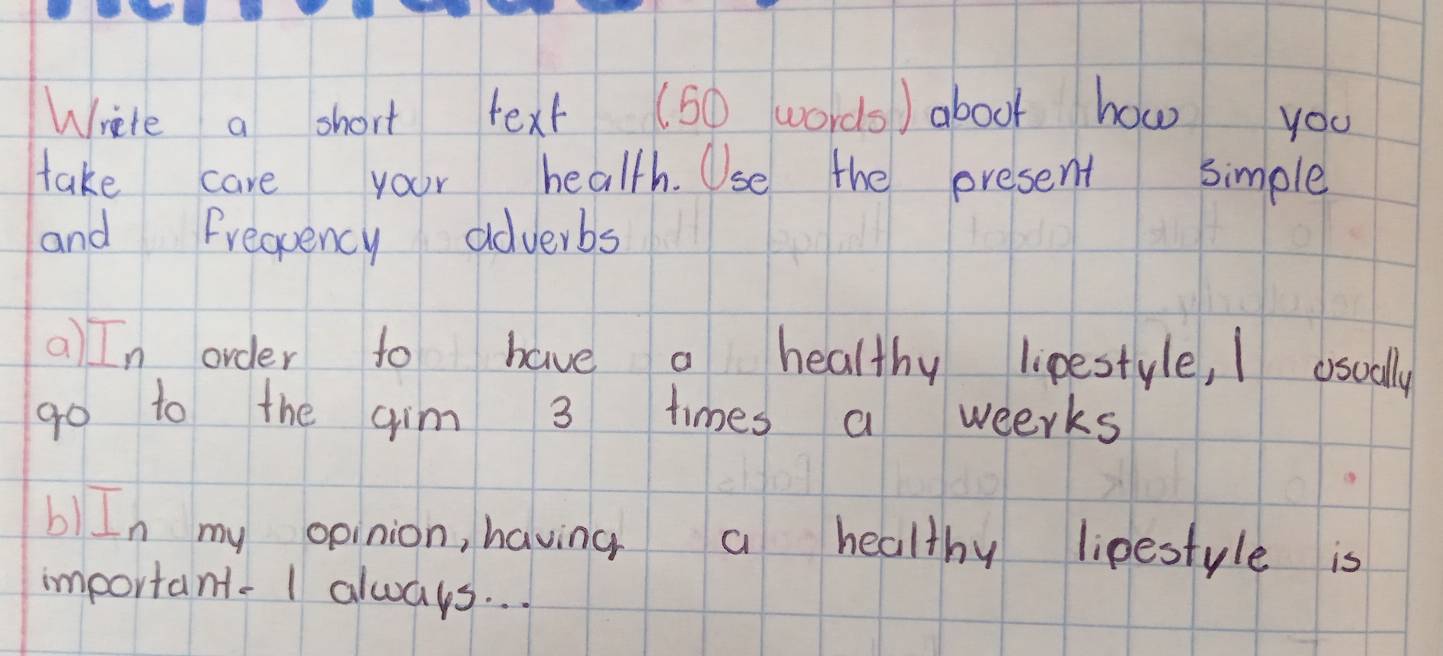 Write a short text (50 words) about how you
take care your health. Use the present simple
and frequency adverbs
a) In order to have a healthy lipestyle, I usually
go to the gim 3 times a weerks
b) In my opinion, having a healthy lipestyle is
important- I always...